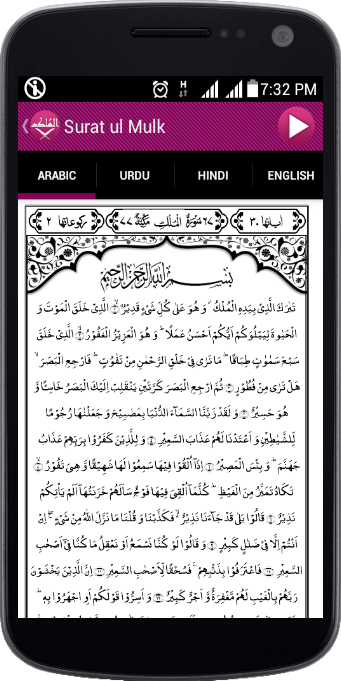 7:32 PM
Surat ul Mulk
ARABIC URDU HINDI ENGLISH
اٰیاتها ٣٠ ٦٧ سُوْرَةُ الْمُلْكِ مَكِّيَّةٌ ٧٧ ركوعاتها ٢
بِسْمِ اللّٰهِ الرَّحْمٰنِ الرَّحِيْمِ
تَبٰرَكَ الَّذِيْ بِيَدِهِ الْمُلْكُ ؗ وَ هُوَ عَلٰى كُلِّ شَيْءٍ قَدِيْرُۙ ۝١ الَّذِيْ خَلَقَ الْمَوْتَ وَ
الْحَيٰوةَ لِيَبْلُوَكُمْ اَيُّكُمْ اَحْسَنُ عَمَلًا ؕ وَ هُوَ الْعَزِيْزُ الْغَفُوْرُۙ ۝٢ الَّذِيْ خَلَقَ
سَبْعَ سَمٰوٰتٍ طِبَاقًا ؕ مَا تَرٰى فِيْ خَلْقِ الرَّحْمٰنِ مِنْ تَفٰوُتٍ ؕ فَارْجِعِ الْبَصَرَ ۙ
هَلْ تَرٰى مِنْ فُطُوْرٍ ۝٣ ثُمَّ ارْجِعِ الْبَصَرَ كَرَّتَيْنِ يَنْقَلِبْ اِلَيْكَ الْبَصَرُ خَاسِئًا وَّ
هُوَ حَسِيْرٌ ۝٤ وَ لَقَدْ زَيَّنَّا السَّمَآءَ الدُّنْيَا بِمَصَابِيْحَ وَ جَعَلْنٰهَا رُجُوْمًا
لِّلشَّيٰطِيْنِ وَ اَعْتَدْنَا لَهُمْ عَذَابَ السَّعِيْرِ ۝٥ وَ لِلَّذِيْنَ كَفَرُوْا بِرَبِّهِمْ عَذَابُ
جَهَنَّمَ ؕ وَ بِئْسَ الْمَصِيْرُ ۝٦ اِذَاۤ اُلْقُوْا فِيْهَا سَمِعُوْا لَهَا شَهِيْقًا وَّ هِيَ تَفُوْرُۙ ۝٧
تَكَادُ تَمَيَّزُ مِنَ الْغَيْظِ ؕ كُلَّمَاۤ اُلْقِيَ فِيْهَا فَوْجٌ سَاَلَهُمْ خَزَنَتُهَاۤ اَلَمْ يَاْتِكُمْ
نَذِيْرٌ ۝٨ قَالُوْا بَلٰى قَدْ جَآءَنَا نَذِيْرٌ ۙ فَكَذَّبْنَا وَ قُلْنَا مَا نَزَّلَ اللّٰهُ مِنْ شَيْءٍ ۖۚ اِنْ
اَنْتُمْ اِلَّا فِيْ ضَلٰلٍ كَبِيْرٍ ۝٩ وَ قَالُوْا لَوْ كُنَّا نَسْمَعُ اَوْ نَعْقِلُ مَا كُنَّا فِيْۤ اَصْحٰبِ
السَّعِيْرِ ۝١٠ فَاعْتَرَفُوْا بِذَنْۢبِهِمْ ۚ فَسُحْقًا لِّاَصْحٰبِ السَّعِيْرِ ۝١١ اِنَّ الَّذِيْنَ يَخْشَوْنَ
رَبَّهُمْ بِالْغَيْبِ لَهُمْ مَّغْفِرَةٌ وَّ اَجْرٌ كَبِيْرٌ ۝١٢ وَ اَسِرُّوْا قَوْلَكُمْ اَوِ اجْهَرُوْا بِهٖ ؕ